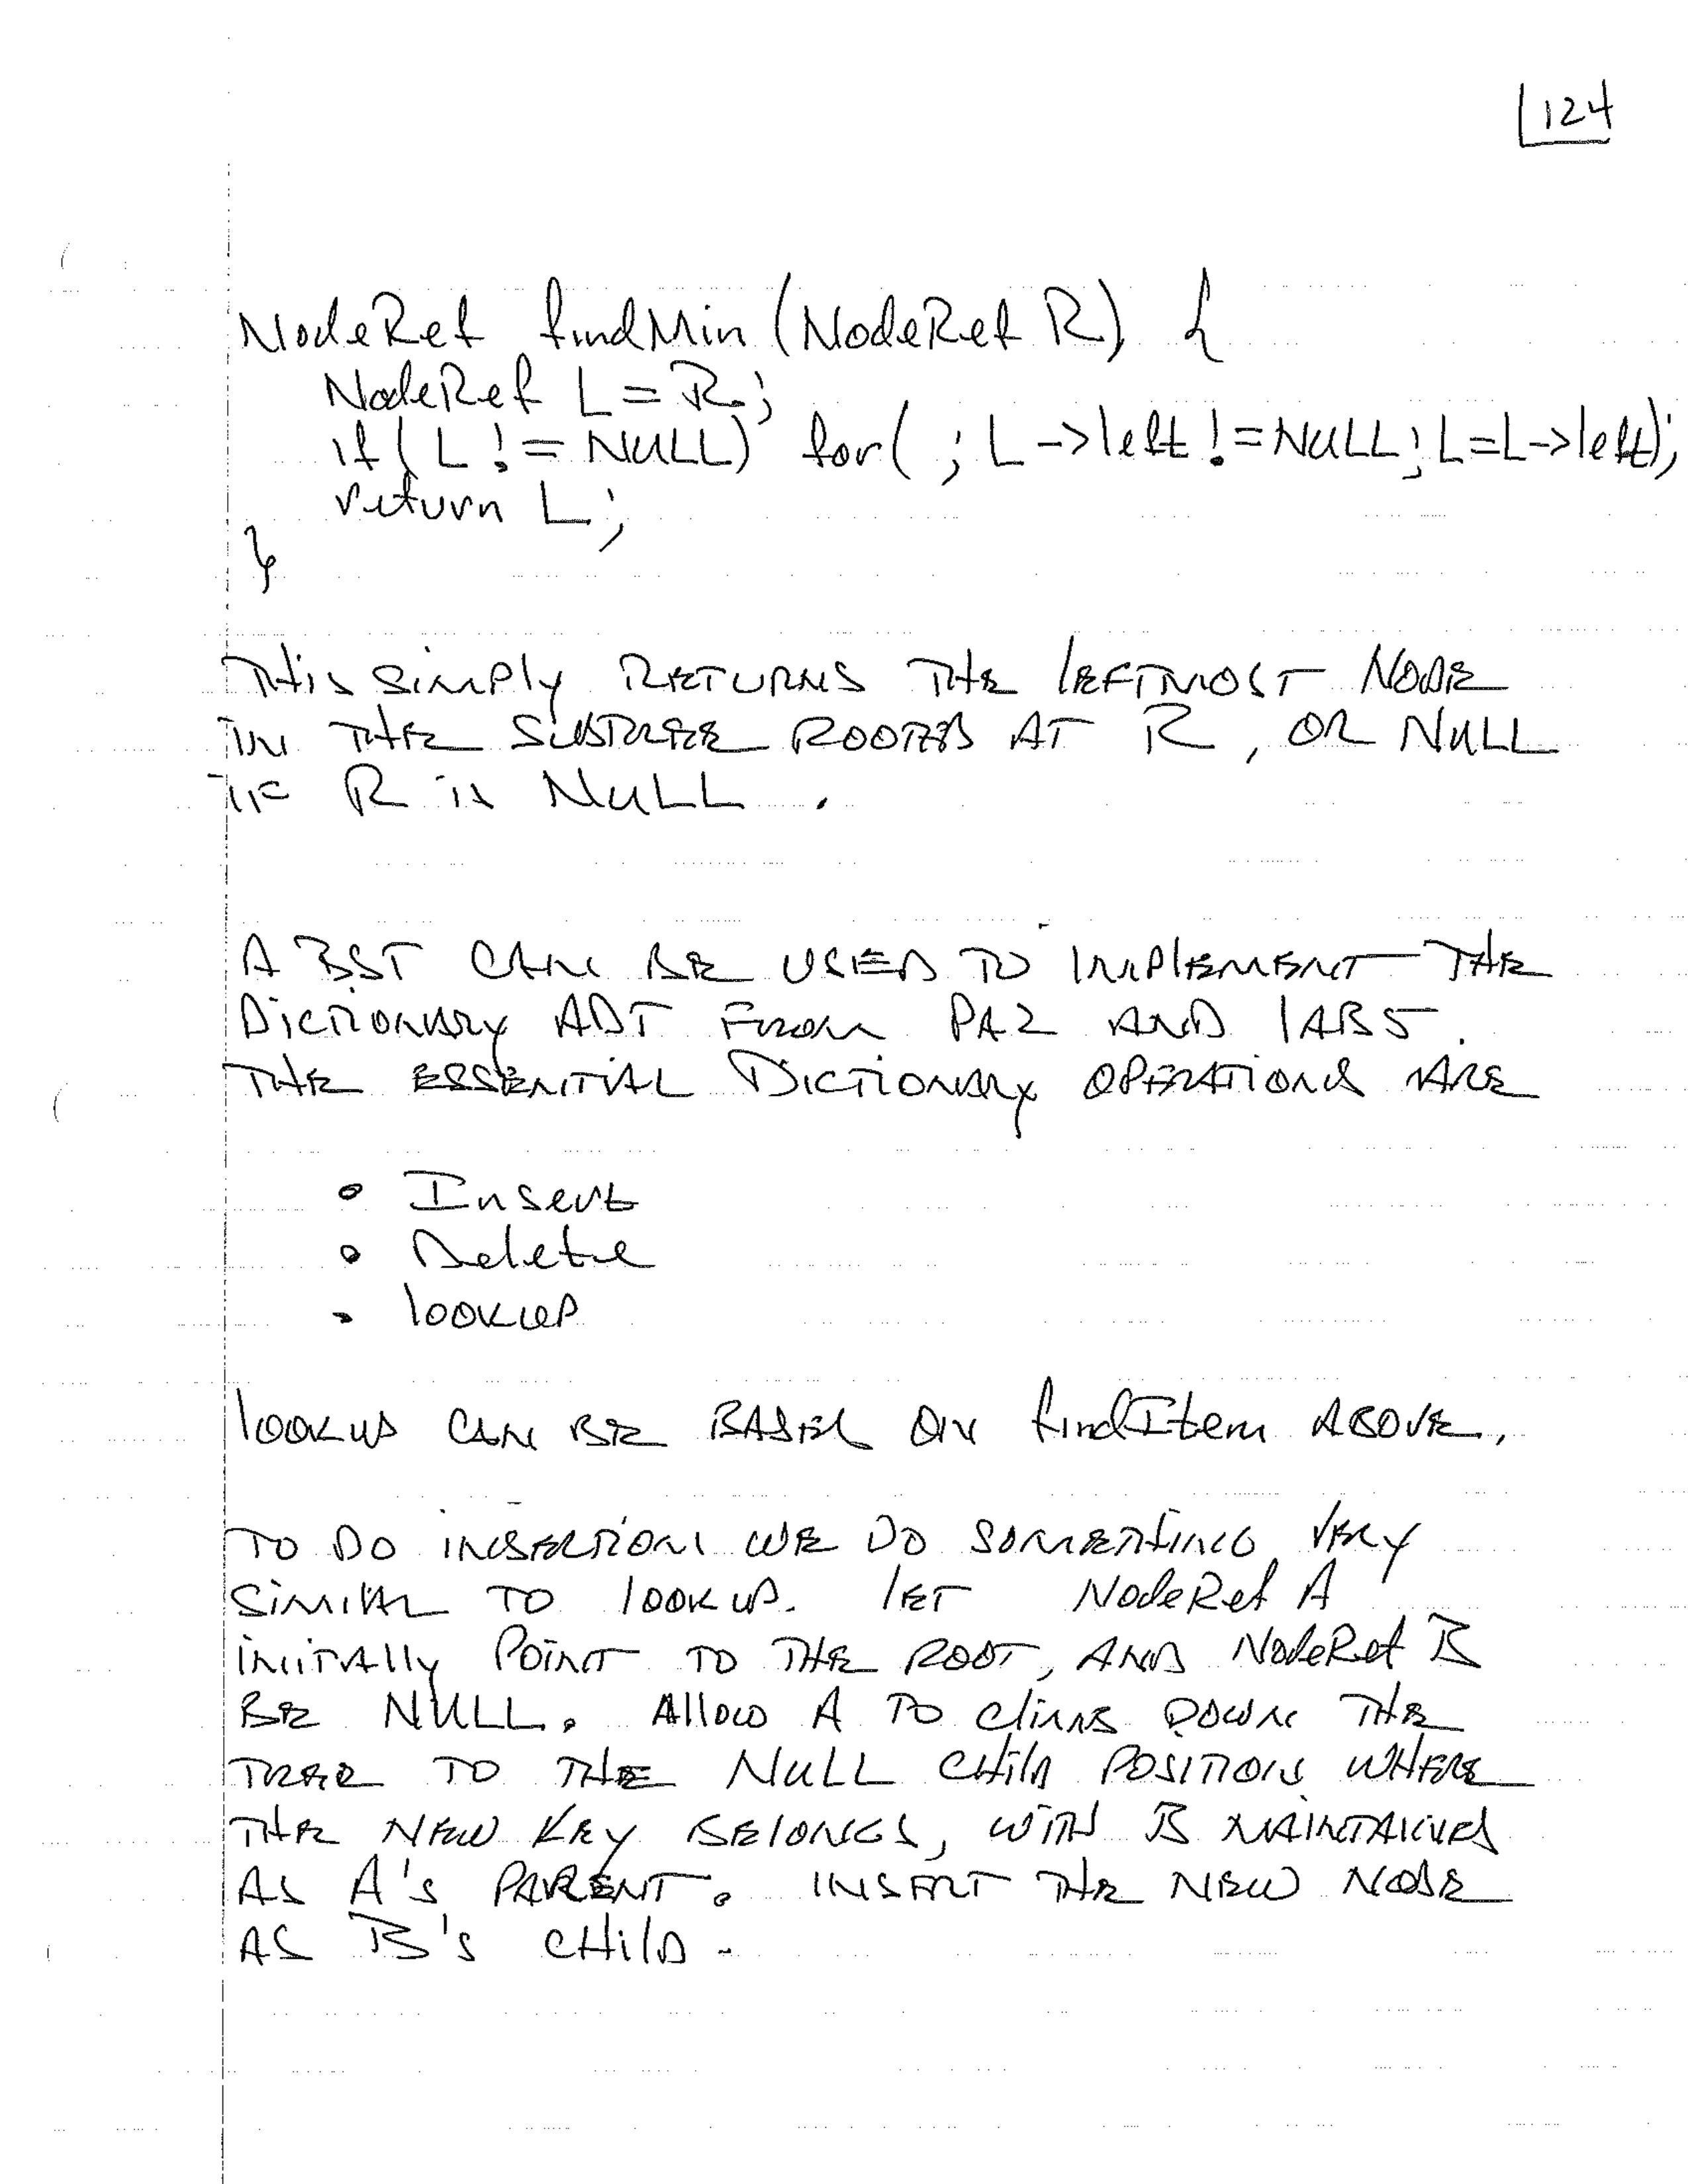 124
NodeRef findMin(NodeRef R) {
NodeRef L=R;
if(L != NULL) for( ; L->left != NULL; L=L->left);
return L;
}
THIS SIMPLY RETURNS THE LEFTMOST NODE
IN THE SUBTREE ROOTED AT R, OR NULL
IF R is NULL.
A BST CAN BE USED TO IMPLEMENT THE
DICTIONARY ADT FROM PA2 AND LAB5.
THE ESSENTIAL DICTIONARY OPERATIONS ARE
• Insert
• Delete
• LOOKUP
LOOKUP CAN BE BASED ON findItem ABOVE.
TO DO INSERTION WE DO SOMETHING VERY
SIMILAR TO LOOKUP. LET NodeRef A
INITIALLY POINT TO THE ROOT, AND NodeRef B
BE NULL. ALLOW A TO CLIMB DOWN THE
TREE TO THE NULL CHILD POSITION WHERE
THE NEW KEY BELONGS, WITH B MAINTAINED
AS A's PARENT. INSERT THE NEW NODE
AS B's CHILD.